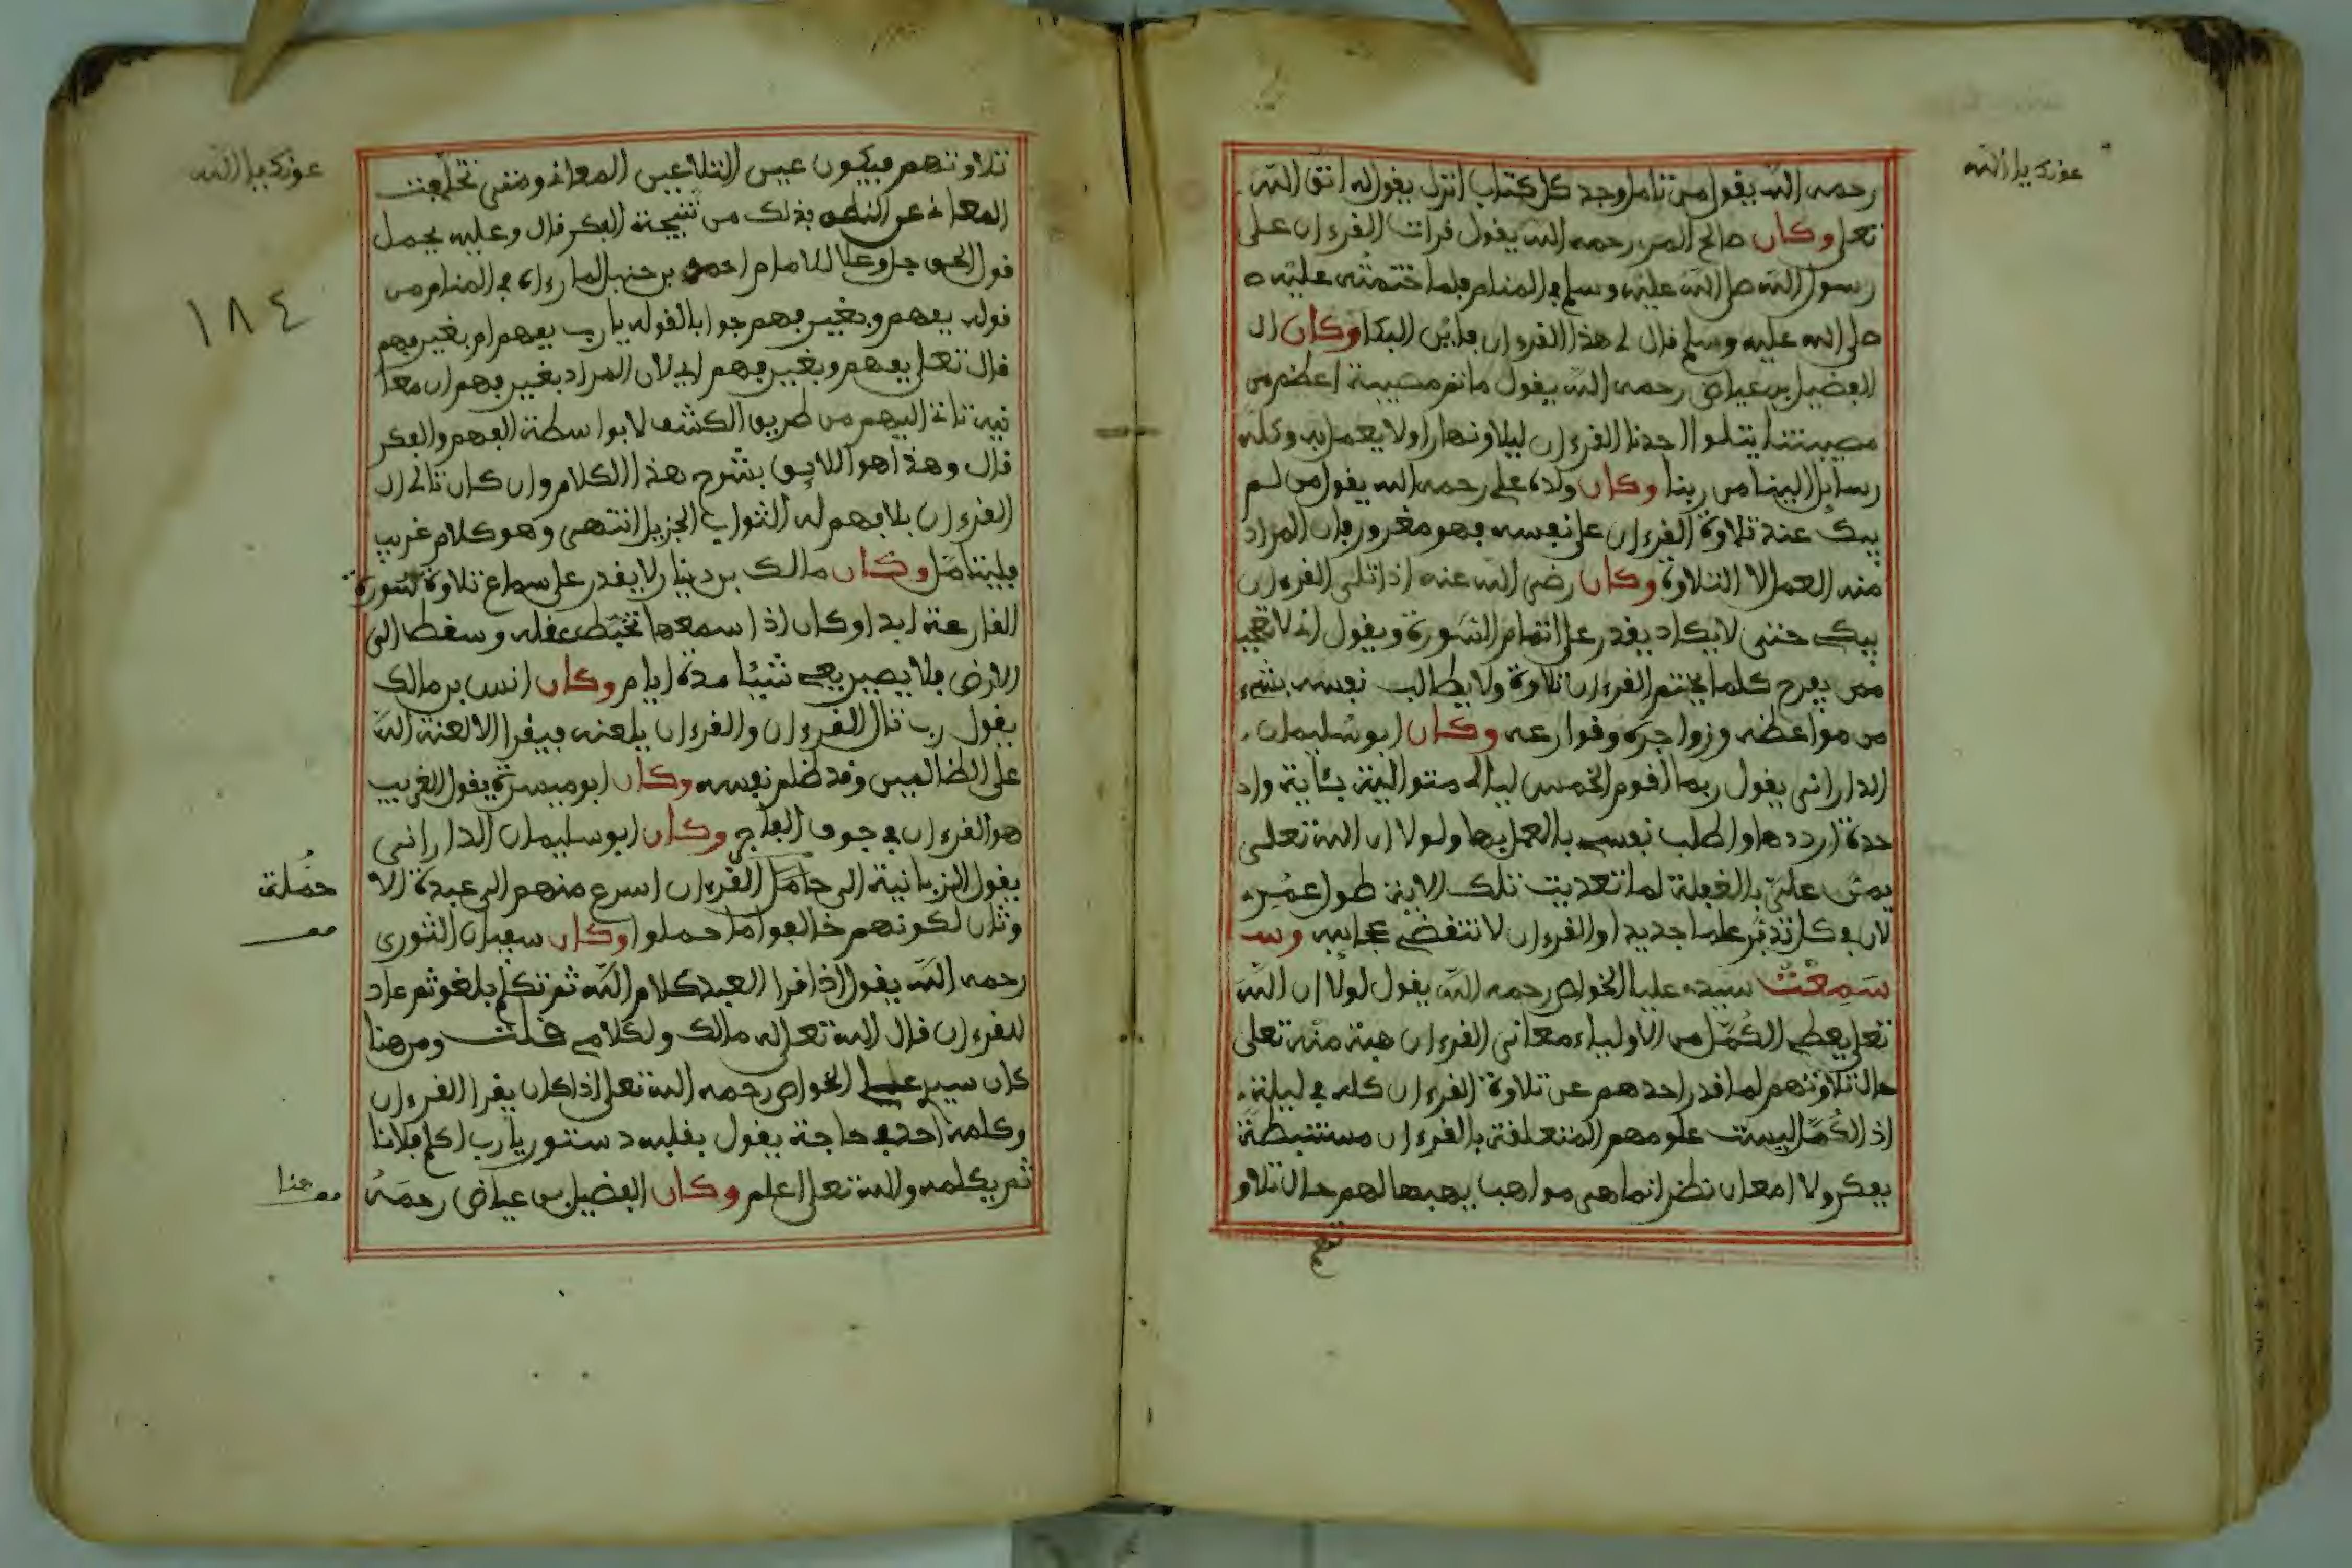 عونك يا الله
رحمه الله يقول من تامل وجد كل كتاب انزل يقول له اتق الله
تعلى وكان صالح المرى رحمه الله يقول قرات القرءان على
رسول الله صلى الله عليه وسلم في المنام فلما ختمته عليه
صلى الله عليه وسلم قال لي هذا القرءان فاين البكا وكان ال
الفضيل بن عياض رحمه الله يقول ما ثم مصيبة اعظم من
مصيبتنا يتلوا احدنا القرءان ليلا ونهارا ولا يعمل به وكله
رسايل الينا من ربنا وكان ولده علي رحمه الله يقول من لم
يبك عند تلاوة القرءان على نفسه فهو مغرور فان المراد
منه العمل لا التلاوة وكان رضى الله عنه اذا تلى القرءان
يبك حتى لا يكاد يقدر على اتمام السورة ويقول اني لا تعجب
ممن يفرح كلما يختم القرءان تلاوة ولا يطالب نفسه بشيء
من مواعظه وزواجره وقوارعه وكان ابو سليمان
الدارانى يقول ربما اقوم الخمس ليالي متوالية بئاية وا
حدة ارددها واطلب نفسي بالعمل بها ولولا ان الله تعلى
يمن علي بالغفلة لما تعديت تلك الاية طول عمرى
لان في كل تدبر علما جديدا والقرءان لا تنقضي عجايبه وسـ
سمعت سيدي عليا الخواص رحمه الله يقول لولا ان الله
تعلى يعطي الكمل من الاولياء معانى القرءان هبة منه تعلى
حال تلاوتهم لما قدر احدهم عن تلاوة القرءان كله في ليلة
اذ الكمل ليست علومهم المتعلقة بالقرءان مستنبطة
بفكر ولا امعان نظر انما هى مواهب يهبها لهم حال تلاو
عونك يا الله
١٨٤
تلاوتهم فيكون عين التلا عين المعاني ومتى تخلفت
المعاني عن النطق فذلك من نتيجة الفكر قال وعليه يحمل
قول الحق جل وعلا للامام احمد بن حنبل لما رءاه في المنام من
قوله بفهم وبغير فهم جوابا لقوله يا رب بفهم ام بغير فهم
قال تعلى بفهم وبغير فهم اي لان المراد بغير فهم ان معا
نيه تاتي اليهم من طريق الكشف لا بواسطة الفهم والفكر
قال وهذا هو اللايق بشرح هذا الكلام وان كان تالي ال
القرءان بلا فهم له الثواب الجزيل انتهى وهو كلام غريب
فليتامل وكان مالك بن دينار لا يقدر على سماع تلاوة سورة
القارعة ابدا وكان اذا سمعها تخبط عقله وسقط الى
الارض فلا يصير يعي شيئا مدة ايام وكان انس بن مالك
يقول رب تال القرءان والقرءان يلعنه فيقرا الا لعنة الله
على الظالمين وقد ظلم نفسه وكان ابو ميسرة يقول الغريب
هو القرءان في جوف الفاجر وكان ابو سليمان الدارانى
يقول الزبانية الى حامل القرءان اسرع منهم الى عبدة الا
حملة
وثان لكونهم خالفوا ما حملوا وكان سفيان الثورى
رحمه الله يقول اذا قرا العبد كلام الله ثم تكلم بلغو ثم عاد
للقرءان قال الله تعلى له مالك ولكلامي قلت ومن هنا
كان سيدي علي الخواص رحمه الله تعلى اذا كان يقرا القرءان
وكلمه احد في حاجة يقول بقلبه دستور يا رب اكلم فلانا
ثم يكلمه والله تعلى اعلم وكان الفضيل بن عياض رحمه